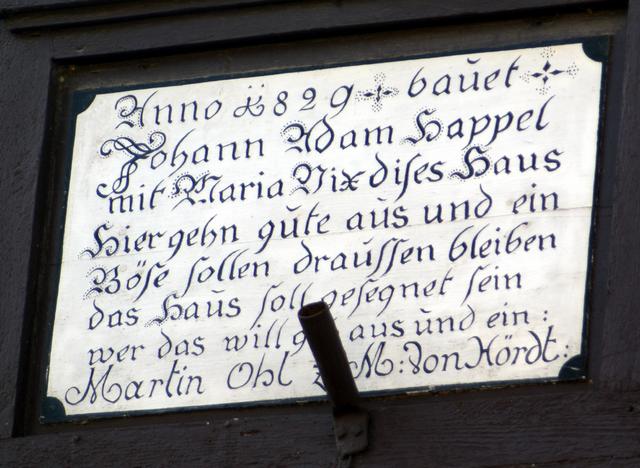 Anno 1829 bauet
Johann Adam Happel
mit Maria Nix dises Haus
Hier gehn gute aus und ein
Böse sollen draussen bleiben
das Haus soll gesegnet sein
wer das will aus und ein :
Martin Ohl Z:M: von Hördt: